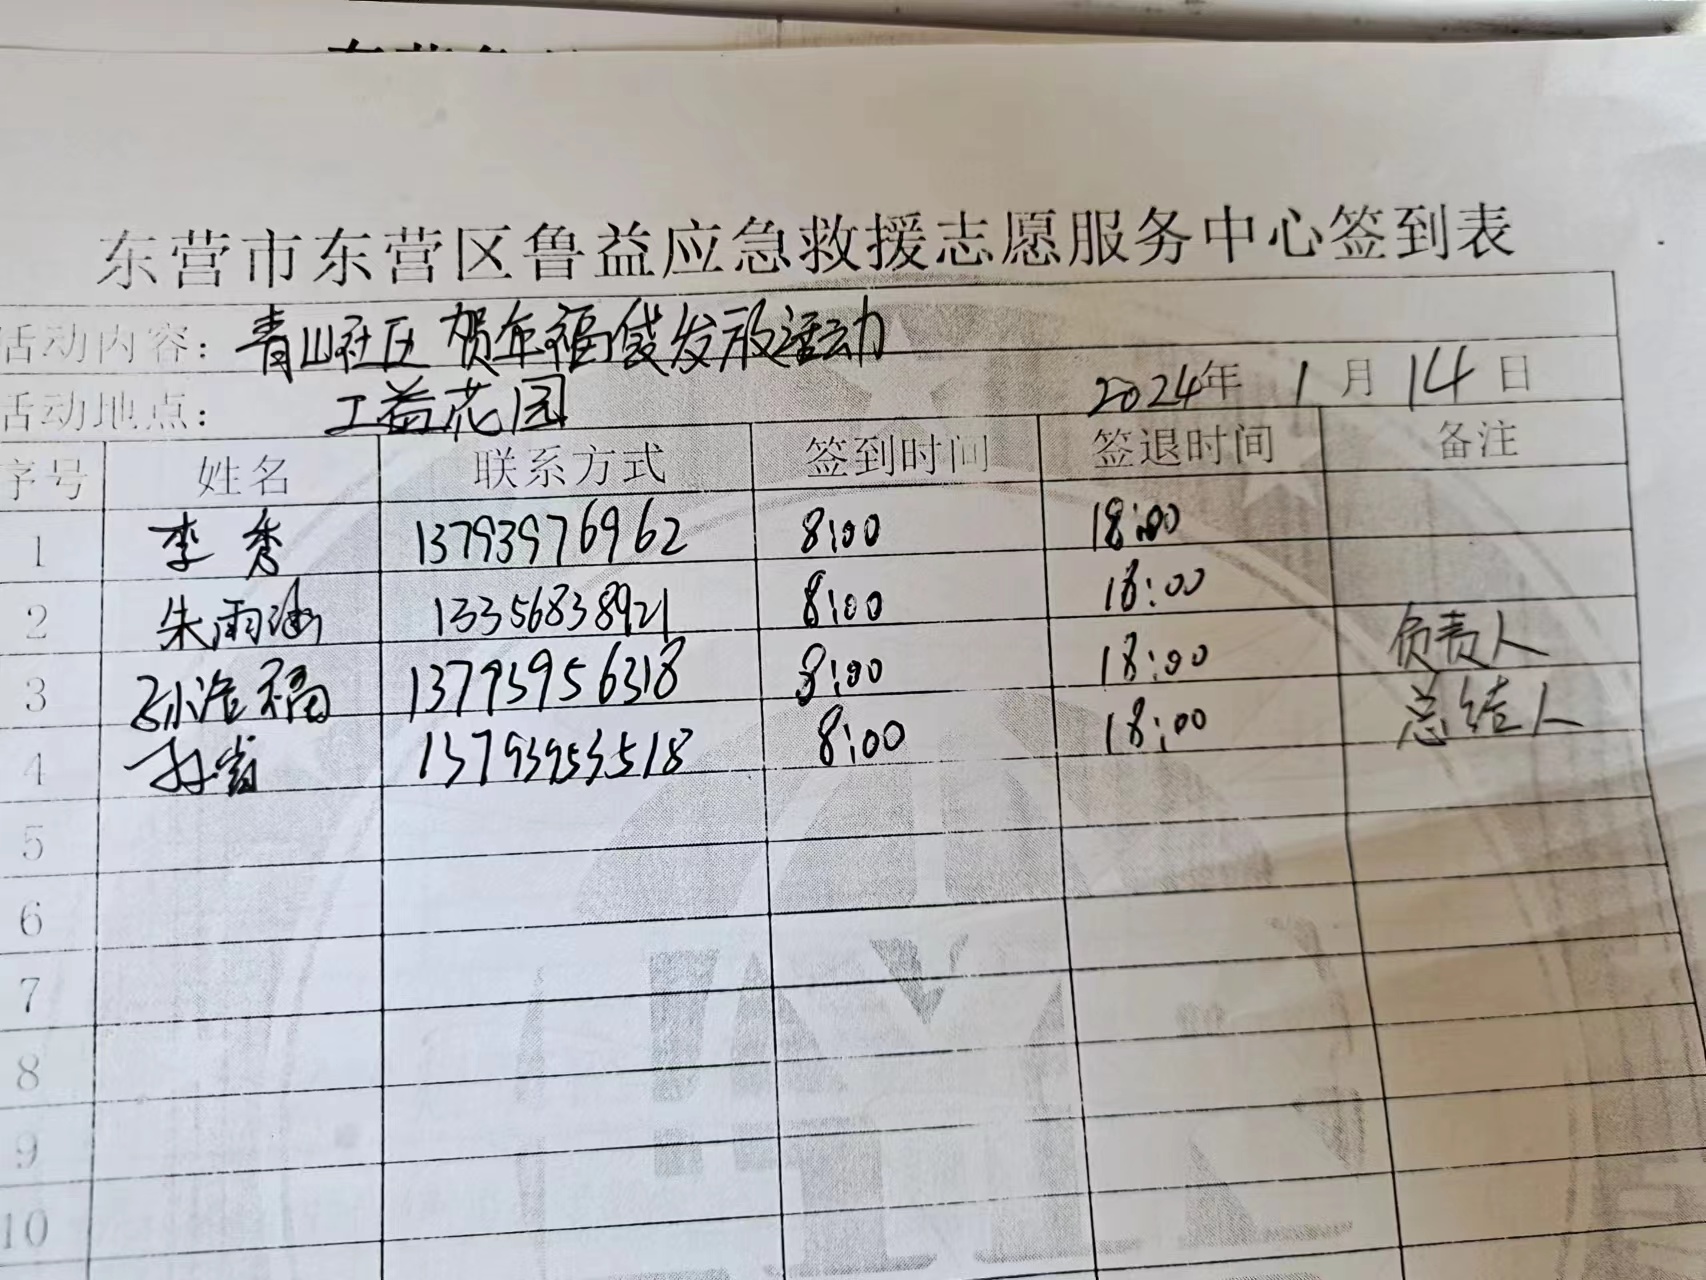 东营市东营区鲁益应急救援志愿服务中心签到表
活动内容: 青山社区 贺年福袋发放活动
活动地点: 工益花园 2024年 1月 14日
序号 姓名 联系方式 签到时间 签退时间 备注
1 李秀 13793976962 8:00 18:00
2 朱雨涵 13356838921 8:00 18:00
3 孙浩福 13793956318 8:00 18:00 负责人
4 13793953518 8:00 18:00 总结人
5
6
7
8
9
10